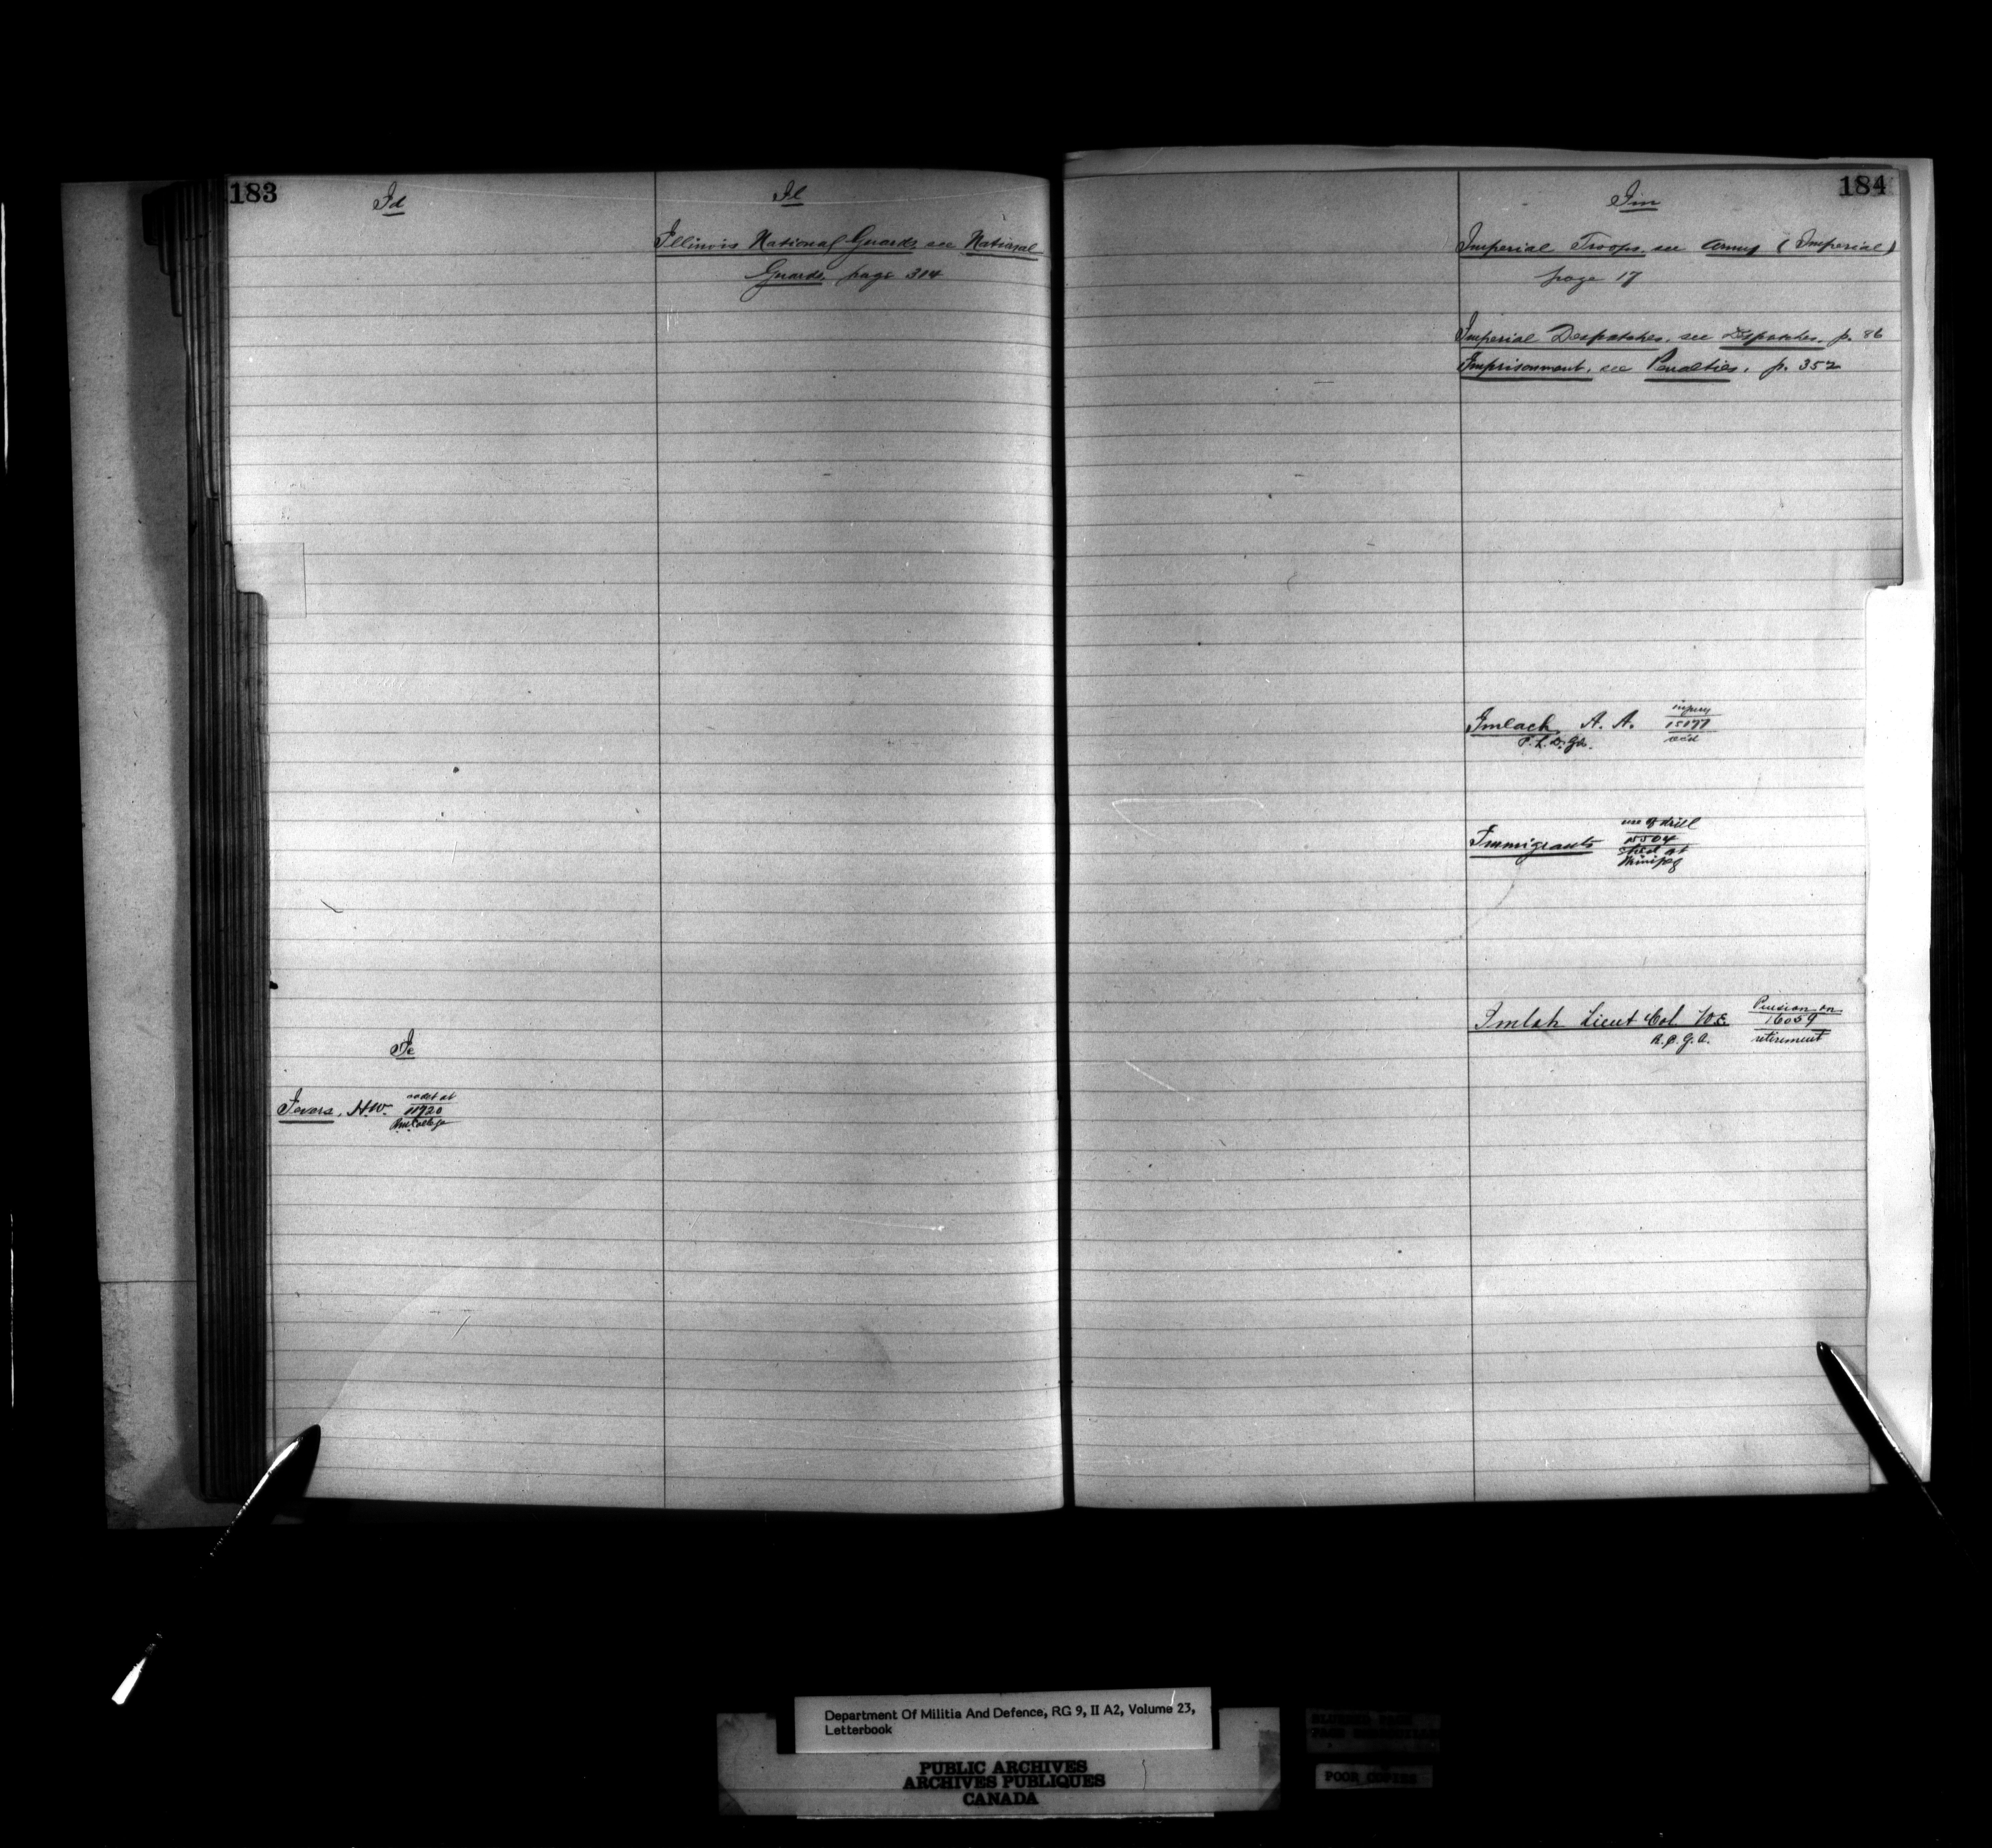 183
Id
Il
Illinois National Guards see National
Guards, page 314
Ie
Ievers, H.W. cadet at
11720
Mil College
184
Im
Imperial Troops, see Army (Imperial)
page 17
Imperial Despatches, see Despatches, p. 86
Imprisonment, see Penalties, p. 352
Imlach A. A. injury
15177
P. L. D. Gds.
Immigrants use of drill
15504
shed at
Winnipeg
Imlah Lieut Col W.E. Pension on
16059
R.C.G.A. retirement
Department Of Militia And Defence, RG 9, II A2, Volume 23,
Letterbook
PUBLIC ARCHIVES
ARCHIVES PUBLIQUES
CANADA
POOR COPIES